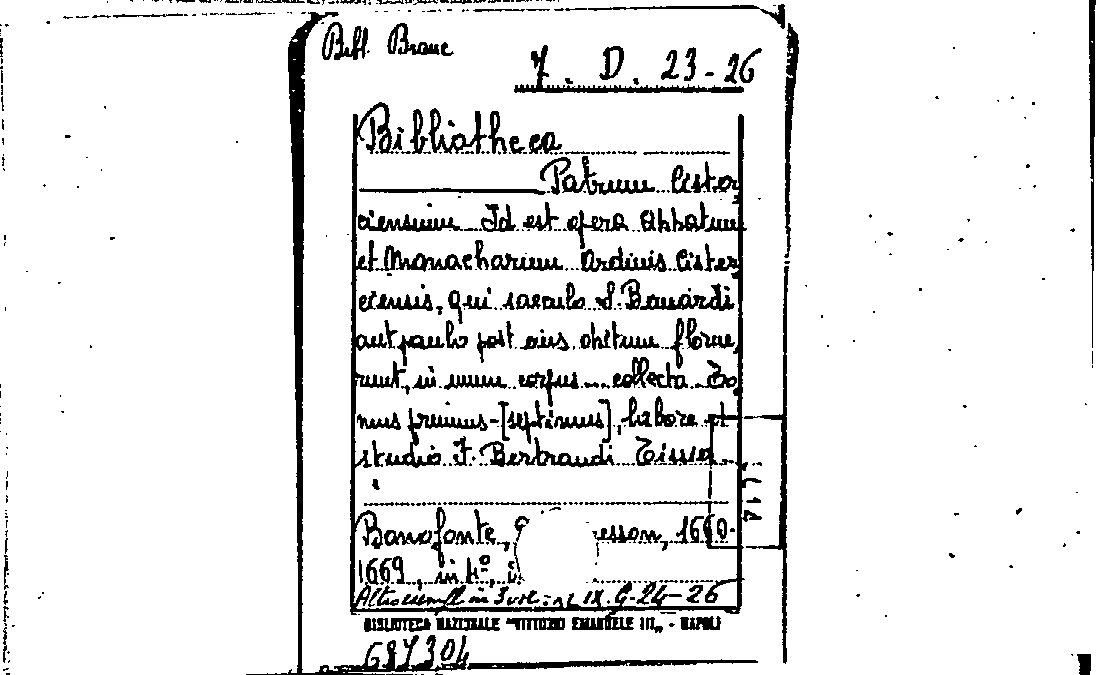 Bibl. Branc
7. D. 23-26
Bibliotheca
Patrum Cister
ciensium. Id est opera Abbatum
et Monachorum Ordinis Cister
ciensis, qui saeculo S. Bernardi
aut paulo post eius obitum florue
runt, in unum corpus collecta. To
mus primus-[septimus], labore et
studio F. Bertrandi Tissier
Bonofonte, esson, 1660-
1669, in 4º,
Altro esempl. in 3 vol: IX. G. 24-26
BIBLIOTECA NAZIONALE "VITTORIO EMANUELE III" - NAPOLI
687304